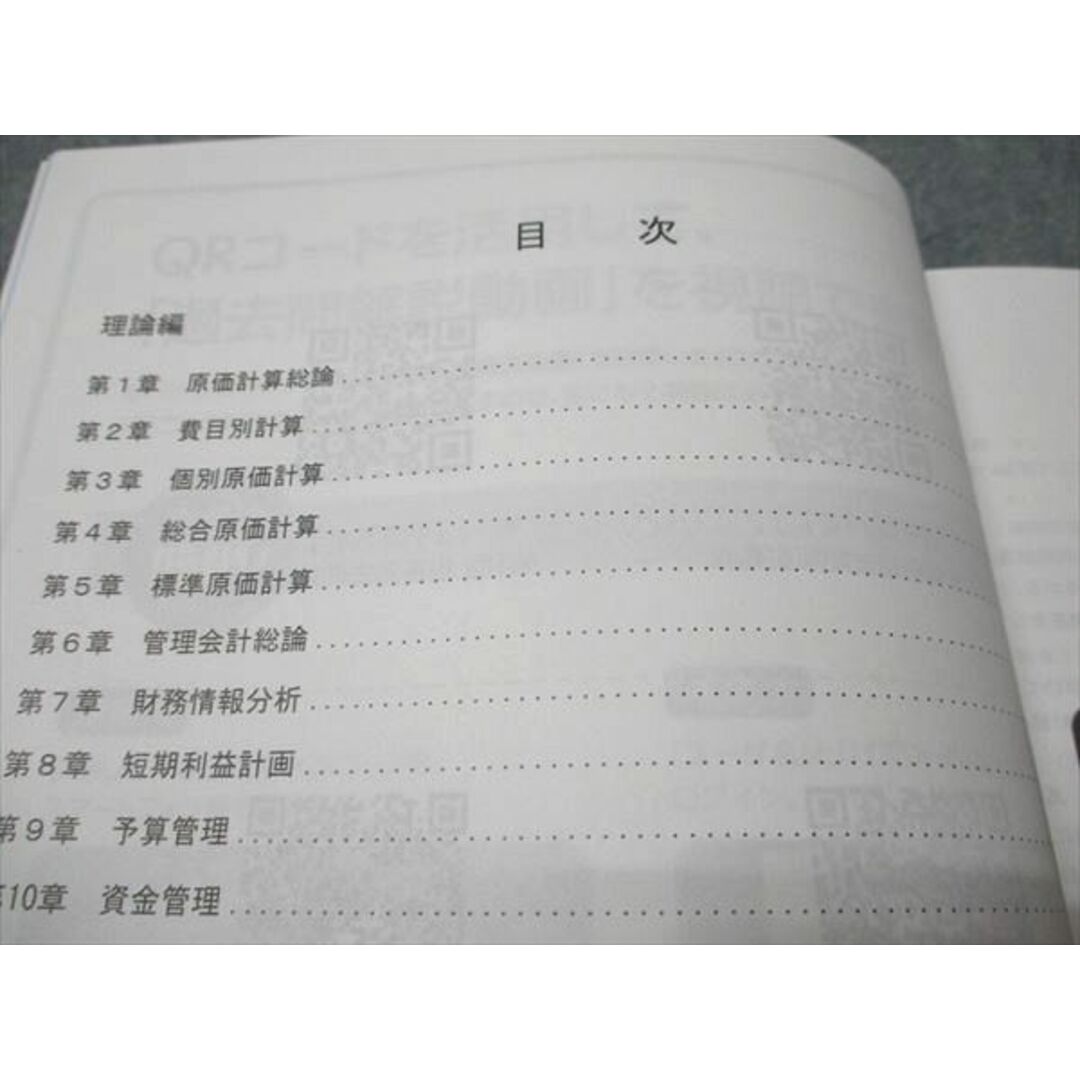 目 次
理論編
第1章 原価計算総論
第2章 費目別計算
第3章 個別原価計算
第4章 総合原価計算
第5章 標準原価計算
第6章 管理会計総論
第7章 財務情報分析
第8章 短期利益計画
第9章 予算管理
第10章 資金管理